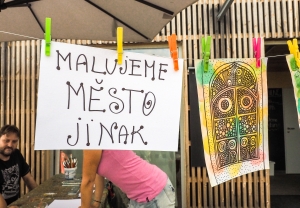 MALUJEME
MĚSTO
jiNAK